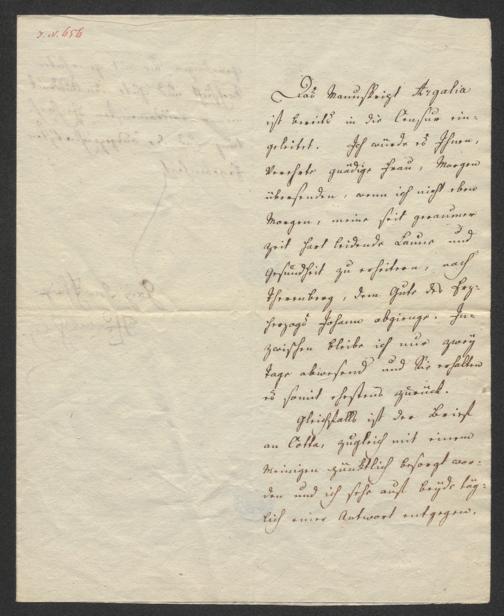 J. N. 656
Das Manuskript Argalia
ist bereits in die Censur ein-
geleitet. Ich würde es Ihnen,
Verehrte gnädige Frau, Morgen
übersenden, wenn ich nicht eben
Morgen, meine seit geraumer
Zeit hart leidende Laune und
Gesundheit zu erheitern, nach
Thernberg, dem Gute des Erz-
herzogs Johann abgienge. In-
zwischen bleibe ich nur zwey
Tage abwesend und Sie erhalten
es somit ehestens zurück.
Gleichfalls ist der Brief
an Cotta, zugleich mit einem
Meinigen pünktlich besorgt wor-
den und ich sehe auf beyde täg-
lich einer Antwort entgegen.